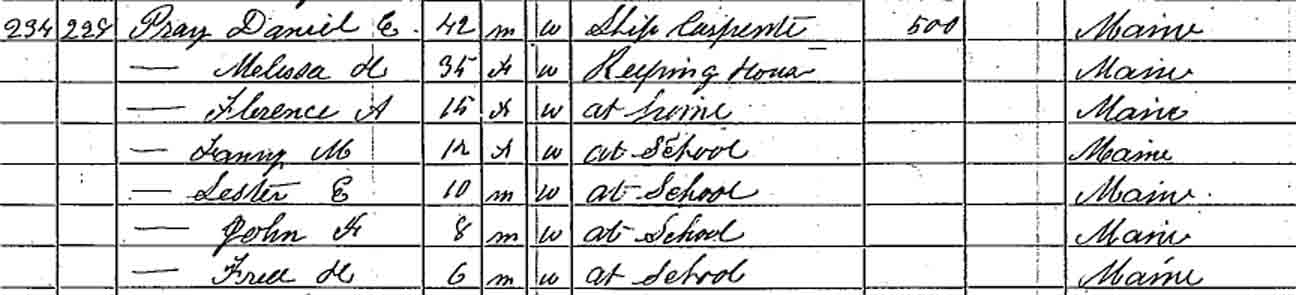 234 228 Pray Daniel E. 42 m w Ship Carpenter 500 Maine
— Melissa H 35 f w Keeping House Maine
— Florence A 15 f w at home Maine
— Fanny M 12 f w at School Maine
— Lester E 10 m w at School Maine
— John F 8 m w at School Maine
— Fred H 6 m w at School Maine